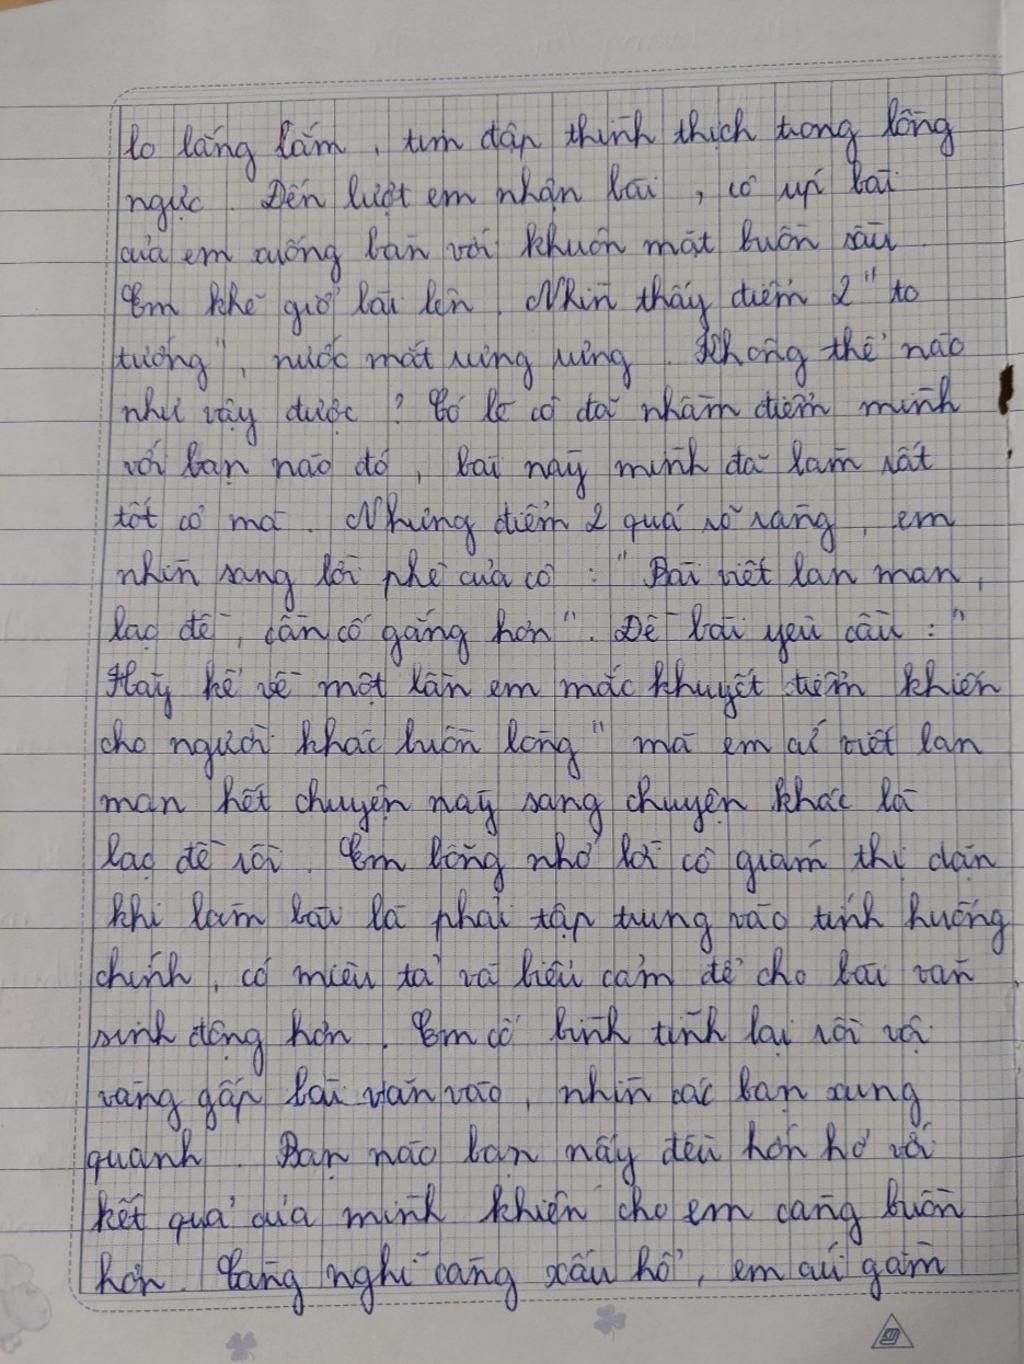 lo lắng lắm, tim đập thình thịch trong lồng
ngực. Đến lượt em nhận bài, cô úp bài
của em xuống bàn với khuôn mặt buồn sầu.
Em khẽ giở bài lên. Nhìn thấy điểm 2 "to
tướng", nước mắt rưng rưng. Không thể nào
như vậy được? Có lẽ cô đã nhầm điểm mình
với bạn nào đó, bài này mình đã làm rất
tốt cơ mà. Nhưng điểm 2 quá rõ ràng, em
nhìn sang lời phê của cô: "Bài viết lan man,
lạc đề, cần cố gắng hơn". Đề bài yêu cầu: "
Hãy kể về một lần em mắc khuyết điểm khiến
cho người khác buồn lòng" mà em cứ viết lan
man hết chuyện này sang chuyện khác là
lạc đề rồi. Em bỗng nhớ lời cô giám thị dặn
khi làm bài là phải tập trung vào tình huống
chính, có miêu tả và biểu cảm để cho bài văn
sinh động hơn. Em cố bình tĩnh lại rồi vội
vàng gấp bài văn vào, nhìn các bạn xung
quanh. Bạn nào bạn nấy đều hớn hở với
kết quả của mình khiến cho em càng buồn
hơn. Càng nghĩ càng xấu hổ, em cúi gằm